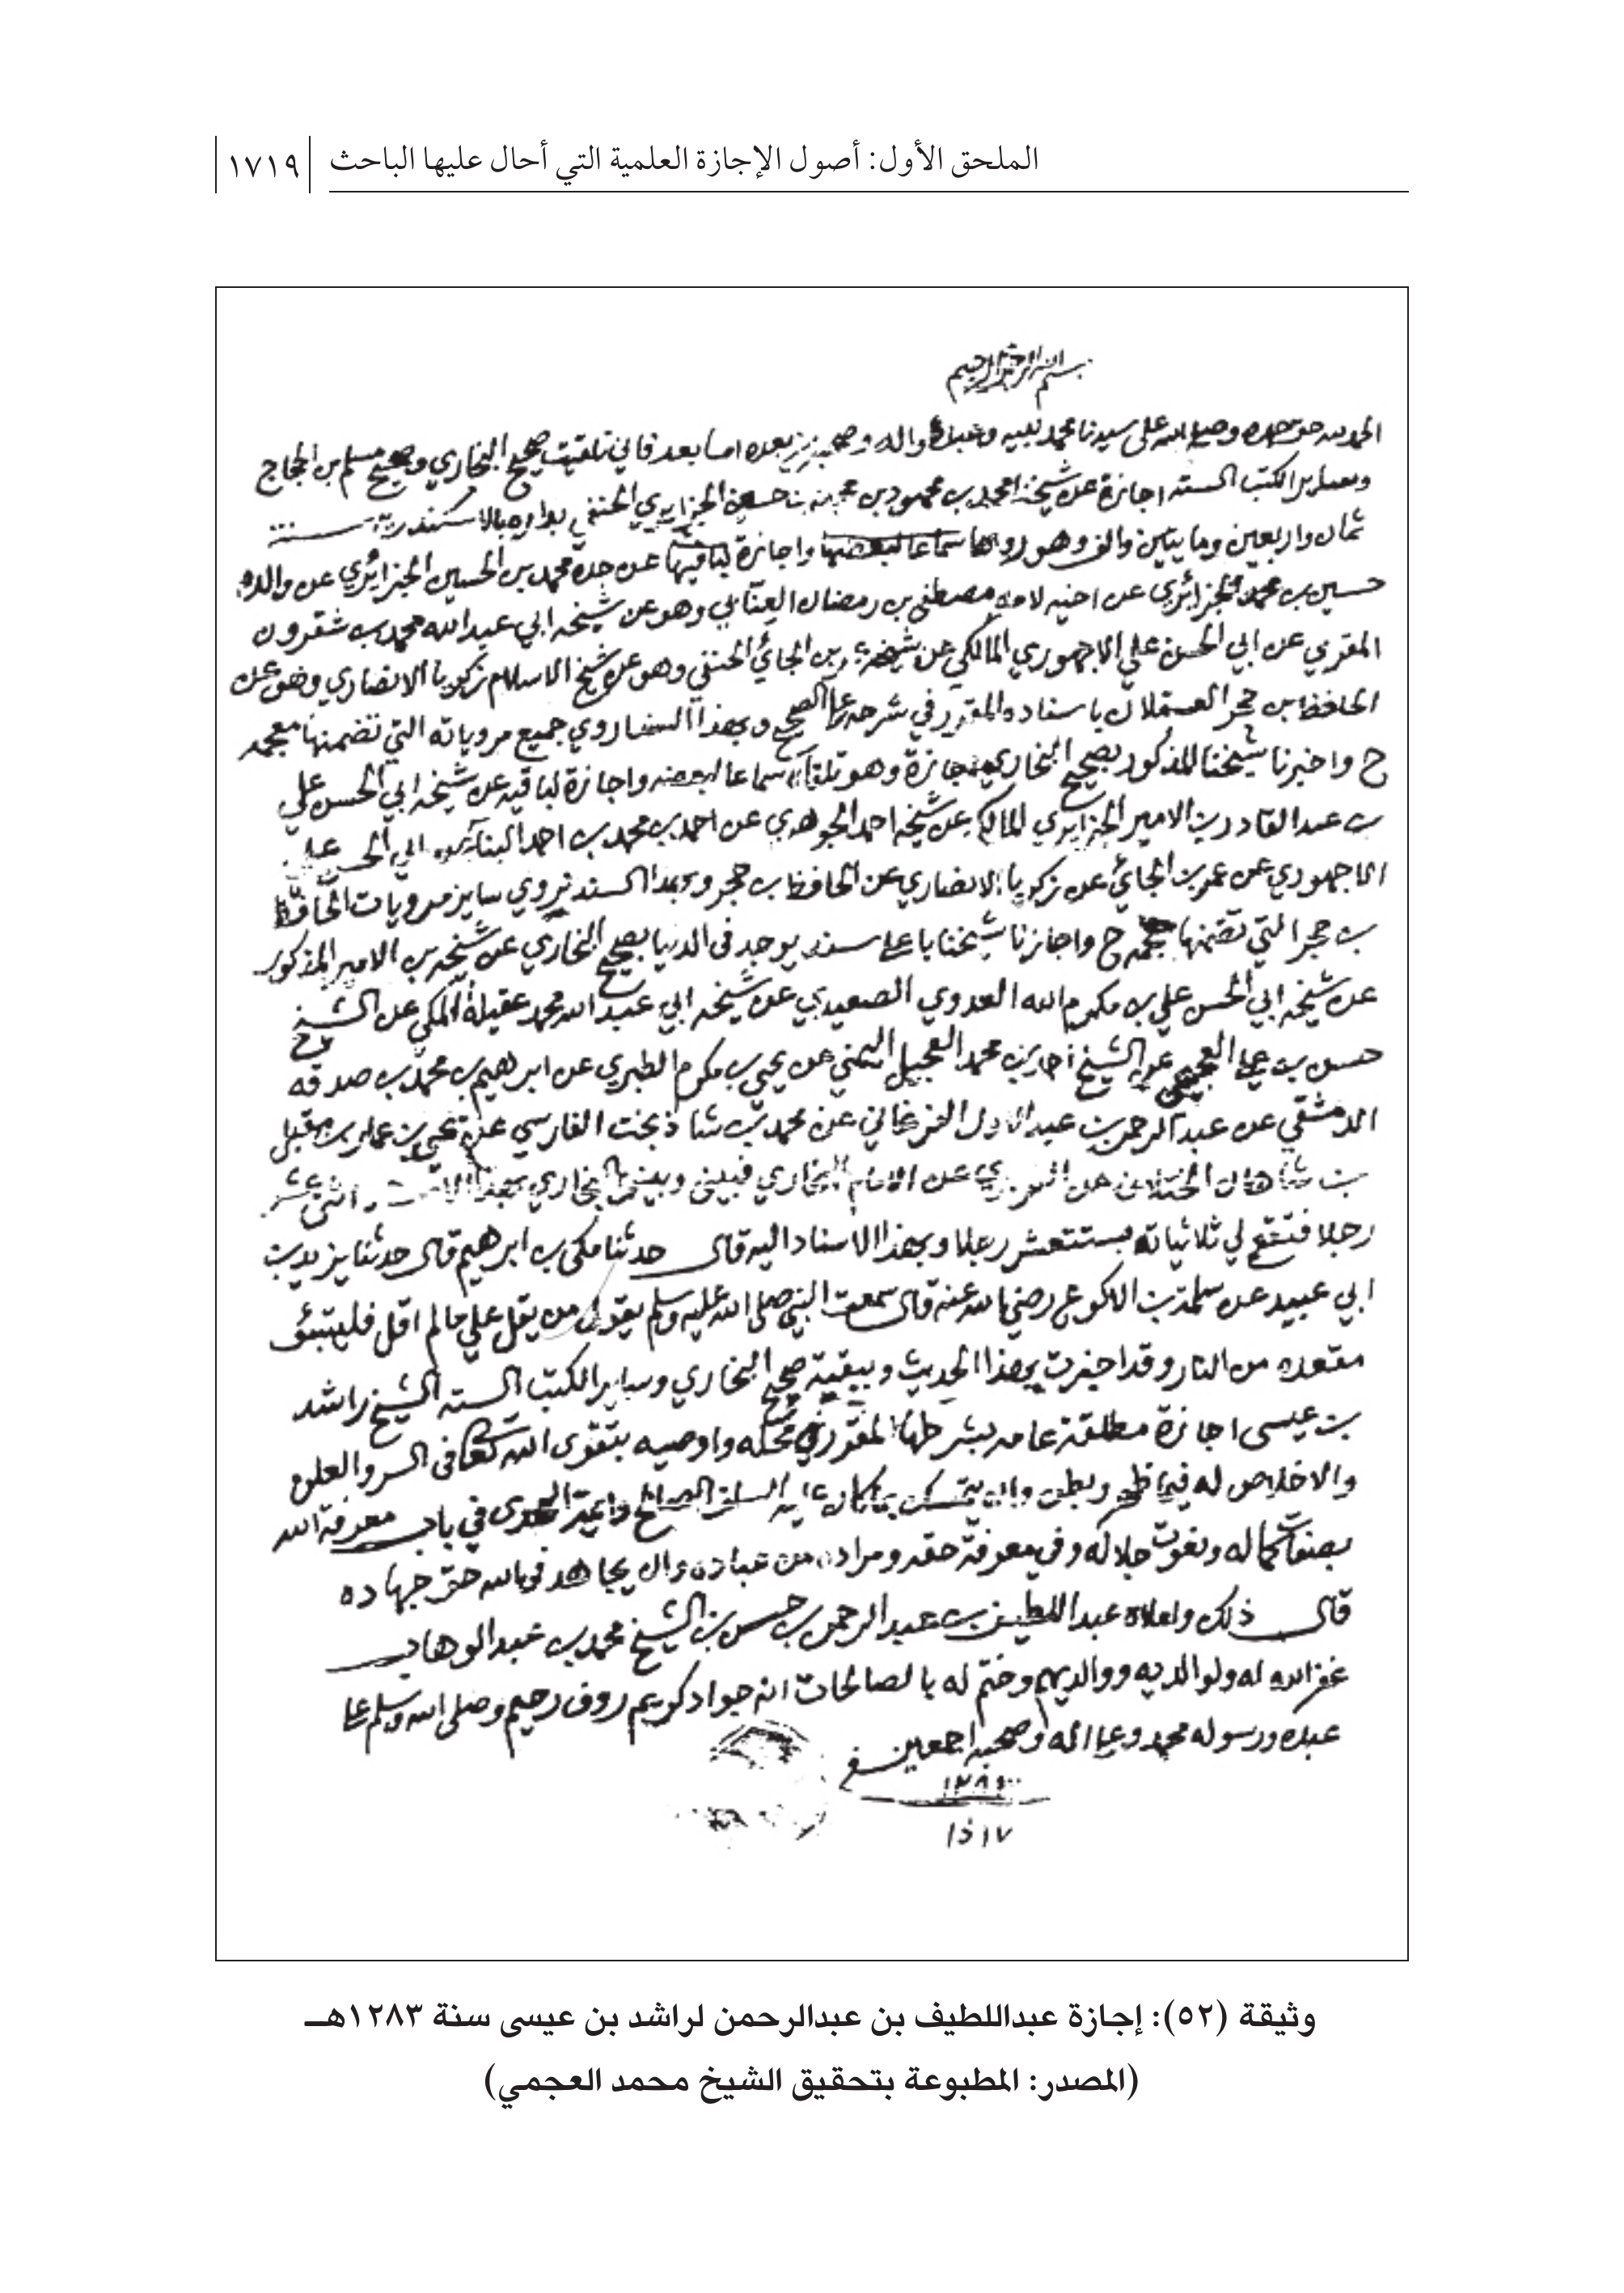 الملحق الأول: أصول الإجازة العلمية التي أحال عليها الباحث
١٧١٩
بسم الله الرحمن الرحيم
الحمد لله حق حمده وصلى الله على سيدنا محمد نبيه وعبده واله وصحبه بعده اما بعد فاني تلقيت صحيح البخاري وصحيح مسلم بن الحجاج
وسائر الكتب الستة اجازة عن شيخنا محمد بن محمود بن محمد بن حسين الجزايري الحنفي بداره بالاسكندرية سنة
ثمان واربعين ومايتين والف وهو رواها سماعا لبعضها واجازة لباقيها عن جده محمد بن الحسين الجزايري عن والده
حسين بن محمد الجزائري عن اخيه لامه مصطفى بن رمضان العنابي وهو عن شيخه ابي عبد الله محمد بن شقرون
المقري عن ابي الحسن علي الاجهوري المالكي عن شيخه بن الجائي الحنفي وهو عن شيخ الاسلام زكريا الانصاري وهو عن
الحافظ بن حجر العسقلاني باسناده المقرر في شرحه على الصحيح وبهذا السند اروي جميع مروياته التي تضمنها معجمه
ح واخبرنا شيخنا المذكور بصحيح البخاري اجازة وهو تلقاه سماعا لبعضه واجازة لباقيه عن شيخه ابي الحسن علي
بن عبد القادر بن الامير الجزايري المالكي عن شيخه احمد الجوهري عن احمد بن محمد بن احمد البنا عن ابي الحسن علي
الاجهوري عن عمر بن الجائي عن زكريا الانصاري عن الحافظ بن حجر وبهذا السند نروي ساير مرويات الحافظ
بن حجر التي تضمنها معجمه ح واجازنا شيخنا باعلى سند يوجد في الدنيا بصحيح البخاري عن شيخه بن الامير المذكور
عن شيخه ابي الحسن علي بن مكرم الله العدوي الصعيدي عن شيخه ابي عبد الله محمد عقيلة المكي عن الشيخ
حسن بن علي العجيمي عن الشيخ احمد بن محمد العجيل اليمني عن يحيى بن مكرم الطبري عن ابرهيم بن محمد بن صدقه
الدمشقي عن عبد الرحمن بن عبد الاول الفرغاني عن محمد بن شاذ بخت الفارسي عن يحيى بن عمار بن مقبل
بن شاهان الختلاني عن الفربري عن الامام البخاري فبيني وبين البخاري بهذا اثنى عشر
رجلا فتقع لي ثلاثياته بستة عشر رجلا وبهذا الاسناد اليه قال حدثنا مكي بن ابرهيم قال حدثنا يزيد بن
ابي عبيد عن سلمة بن الاكوع رضي الله عنه قال سمعت النبي صلى الله عليه وسلم يقول من يقل علي ما لم اقل فليتبؤ
مقعده من النار وقد اجزت بهذا الحديث وببقية صحيح البخاري وساير الكتب الستة الشيخ راشد
بن عيسى اجازة مطلقة عامه بشرطها المقرر في محله واوصيه بتقوى الله تعالى في السر والعلن
والاخلاص له فيما ظهر وبطن وان يتمسك بما كان عليه السلف الصالح وائمة الهدى في باب معرفة الله
بصفات كماله ونعوت جلاله وفي معرفة حقه ومراده من عباده وان يجاهد في الله حق جهاده
قال ذلك واملاه عبد اللطيف بن عبد الرحمن بن حسن بن الشيخ محمد بن عبد الوهاب
غفر الله له ولوالديه ووالديهم وختم له بالصالحات انه جواد كريم روف رحيم وصلى الله وسلم على
عبده ورسوله محمد وعلى اله وصحبه اجمعين
١٧ ذا
وثيقة (٥٢): إجازة عبداللطيف بن عبدالرحمن لراشد بن عيسى سنة ١٢٨٣هـ
(المصدر: المطبوعة بتحقيق الشيخ محمد العجمي)